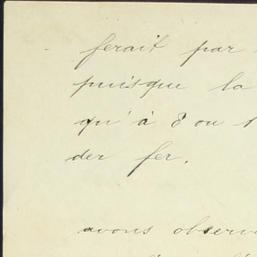 ferait par
puisque la
qu'à 8 ou 1
der fer.
avons observ